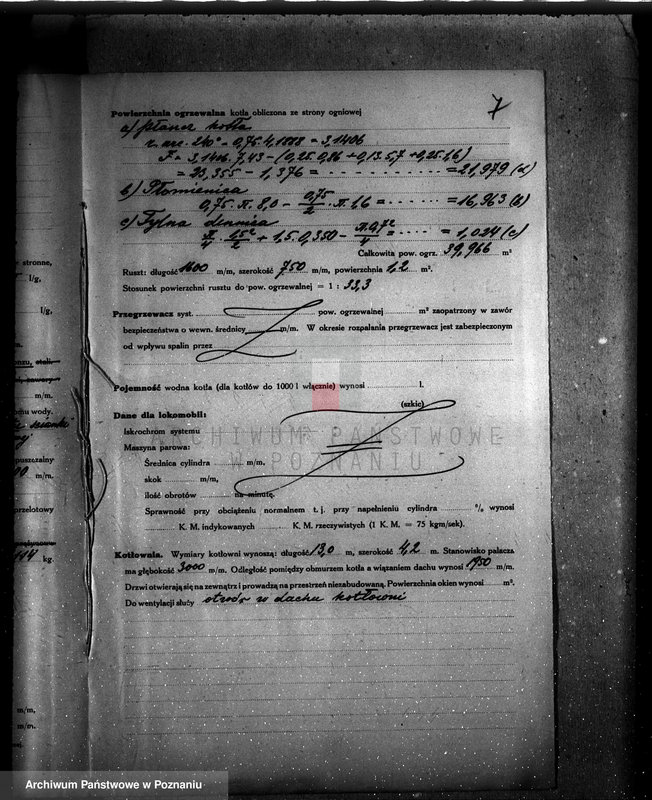 7
Powierzchnia ogrzewalna kotła obliczona ze strony ogniowej
a) płaszcz kotła
r. arc. 240° = 0,75. 4,1888 = 3,1406
F = 3,1406. 7,43 - (0,25. 0,86 + 0,13. 5,7 + 0,25. 1,6)
= 23,355 - 1,376 = = 21,979 (a)
b) Płomienica
0,75. π. 8,0 - 0,75/2 . π. 1,6 = = 16,963 (b)
c) Tylna dennica
π/4 . 1,5²/2 + 1,5. 0,350 - π. 0,7²/4 = = 1,024 (c)
Całkowita pow. ogrz. 39,966 m²
Ruszt: długość 1600 m/m, szerokość 750 m/m, powierzchnia 1,2 m².
Stosunek powierzchni rusztu do pow. ogrzewalnej = 1 : 33,3
Przegrzewacz syst. pow. ogrzewalnej m² zaopatrzony w zawór
bezpieczeństwa o wewn. średnicy m/m. W okresie rozpalania przegrzewacz jest zabezpieczonym
od wpływu spalin przez
Pojemność wodna kotła (dla kotłów do 1000 l włącznie) wynosi l.
(szkic)
Dane dla lokomobil:
Iskrochron systemu
Maszyna parowa:
Średnica cylindra m/m.
skok m/m,
ilość obrotów na minutę.
Sprawność przy obciążeniu normalnem t. j. przy napełnieniu cylindra % wynosi
K. M. indykowanych K. M. rzeczywistych (1 K. M. = 75 kgm/sek).
Kotłownia. Wymiary kotłowni wynoszą: długość 13,0 m, szerokość 4,2 m. Stanowisko palacza
ma głębokość 3000 m/m. Odległość pomiędzy obmurzem kotła a wiązaniem dachu wynosi 1950 m/m.
Drzwi otwierają się na zewnątrz i prowadzą na przestrzeń niezabudowaną. Powierzchnia okien wynosi m².
Do wentylacji służy otwór w dachu kotłowni
stronne,
l/g,
l/g,
m/m.
omu wody.
puszczalny
m/m.
rzelotowy
144 kg.
m/m,
m/m.
ARCHIWUM PAŃSTWOWE
W POZNANIU
Archiwum Państwowe w Poznaniu